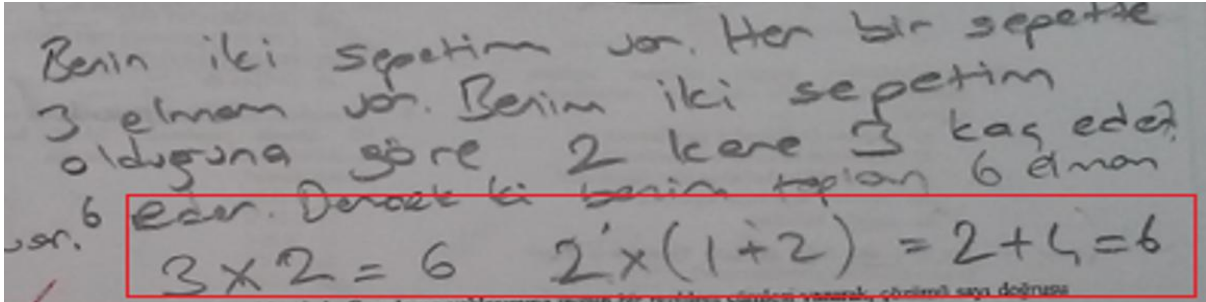 Benin iki sepetim var. Her bir sepette
3 elmam var. Benim iki sepetim
olduguna göre 2 kere 3 kaç eder?
6 eder. Demek ki benim toplam 6 elmam
var.
3 x 2 = 6 2 x (1 + 2) = 2 + 4 = 6
çözümü sayı doğrusu